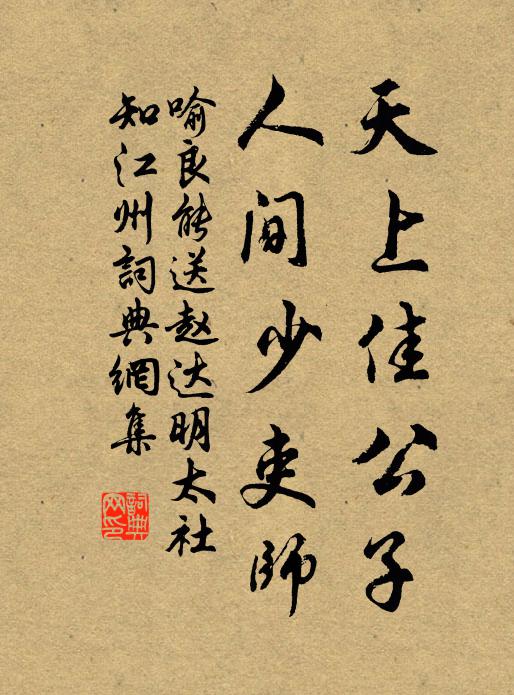 天上佳公子
人间少吏师
喻良能送赵达明太社
知江州詞典網集
詞典网印